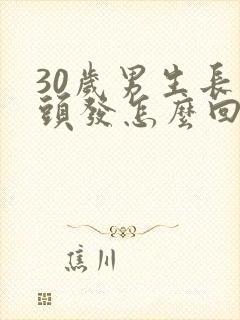 30歲男生長
頭發怎麼回
焦川